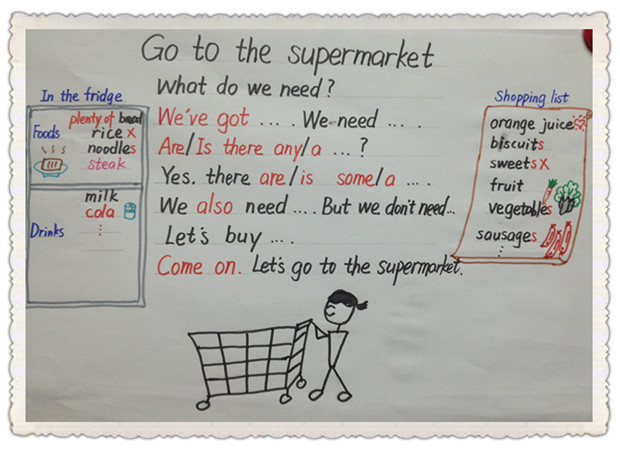 Go to the supermarket
What do we need?
In the fridge
Foods
plenty of bread
rice x
noodles
steak
Drinks
milk
cola
⋮
We've got .... We need ....
Are/Is there any/a ...?
Yes, there are/is some/a ....
We also need .... But we don't need...
Let's buy ....
Come on. Let's go to the supermarket.
Shopping list
orange juice
biscuits
sweets x
fruit
vegetables
sausages
⋮